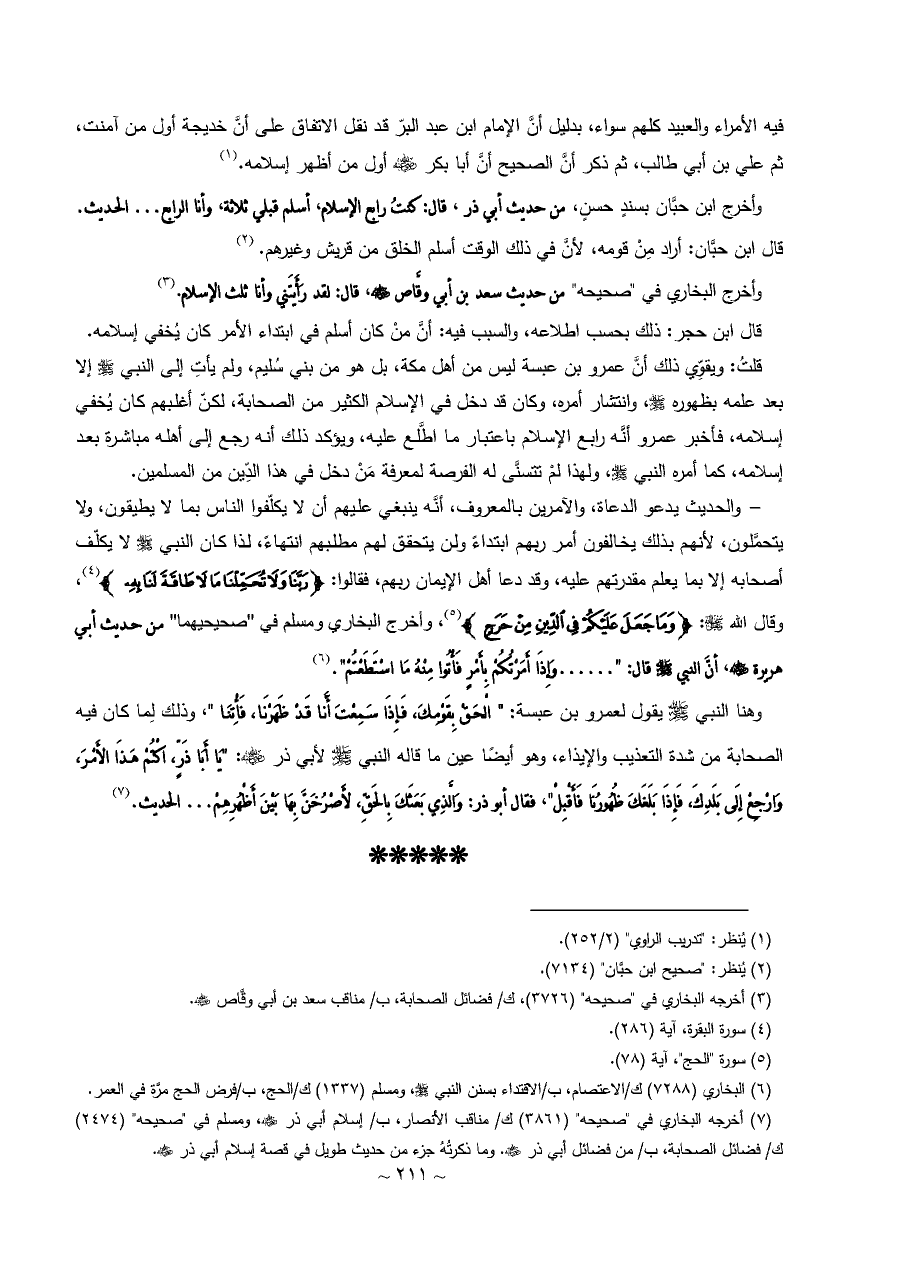 فيه الأمراء والعبيد كلهم سواء، بدليل أنَّ الإمام ابن عبد البرّ قد نقل الاتفاق على أنَّ خديجة أول من آمنت،
ثم علي بن أبي طالب، ثم ذكر أنَّ الصحيح أنَّ أبا بكر ﷺ أول من أظهر إسلامه.(١)
وأخرج ابن حبَّان بسندٍ حسنٍ، من حديث أبي ذر ، قال: كنتُ رابع الإسلام، أسلم قبلي ثلاثة، وأنا الرابع... الحديث.
قال ابن حبَّان: أراد مِنْ قومه، لأنَّ في ذلك الوقت أسلم الخلق من قريش وغيرهم.(٢)
وأخرج البخاري في "صحيحه" من حديث سعد بن أبي وقَّاص ﷺ، قال: لقد رَأَيْتَنِي وأنا ثلث الإسلام.(٣)
قال ابن حجر: ذلك بحسب اطلاعه، والسبب فيه: أنَّ منْ كان أسلم في ابتداء الأمر كان يُخفي إسلامه.
قلتُ: ويقوِّي ذلك أنَّ عمرو بن عبسة ليس من أهل مكة، بل هو من بني سُليم، ولم يأتِ إلى النبي ﷺ إلا
بعد علمه بظهوره ﷺ، وانتشار أمره، وكان قد دخل في الإسلام الكثير من الصحابة، لكنّ أغلبهم كان يُخفي
إسلامه، فأخبر عمرو أنَّه رابع الإسلام باعتبار ما اطلَّع عليه، ويؤكد ذلك أنه رجع إلى أهله مباشرة بعد
إسلامه، كما أمره النبي ﷺ، ولهذا لمْ تتسنَّى له الفرصة لمعرفة مَنْ دخل في هذا الدِّين من المسلمين.
– والحديث يدعو الدعاة، والآمرين بالمعروف، أنَّه ينبغي عليهم أن لا يكلّفوا الناس بما لا يطيقون، ولا
يتحمَّلون، لأنهم بذلك يخالفون أمر ربهم ابتداءً ولن يتحقق لهم مطلبهم انتهاءً، لذا كان النبي ﷺ لا يكلّف
أصحابه إلا بما يعلم مقدرتهم عليه، وقد دعا أهل الإيمان ربهم، فقالوا: ﴿رَبَّنَا وَلَا تُحَمِّلْنَا مَا لَا طَاقَةَ لَنَا بِهِۦ﴾(٤)،
وقال الله ﷻ: ﴿وَمَا جَعَلَ عَلَيْكُمْ فِي ٱلدِّينِ مِنْ حَرَجٍ﴾(٥)، وأخرج البخاري ومسلم في "صحيحيهما" من حديث أبي
هريرة ﷺ، أنَّ النبي ﷺ قال: "......وَإِذَا أَمَرْتُكُمْ بِأَمْرٍ فَأْتُوا مِنْهُ مَا اسْتَطَعْتُمْ".(٦)
وهنا النبي ﷺ يقول لعمرو بن عبسة: " الْحَقْ بِقَوْمِكَ، فَإِذَا سَمِعْتَ أَنَا قَدْ ظَهَرْنَا، فَأْتِنَا "، وذلك لِما كان فيه
الصحابة من شدة التعذيب والإيذاء، وهو أيضًا عين ما قاله النبي ﷺ لأبي ذر ﷺ: "يَا أَبَا ذَرٍّ، اكْتُمْ هَذَا الأَمْرَ،
وَارْجِعْ إِلَى بَلَدِكَ، فَإِذَا بَلَغَكَ ظُهُورُنَا فَأَقْبِلْ"، فقال أبو ذر: وَالَّذِي بَعَثَكَ بِالحَقِّ، لَأَصْرُخَنَّ بِهَا بَيْنَ أَظْهُرِهِمْ... الحديث.(٧)
*****
(١) يُنظر: "تدريب الراوي" (٢٥٢/٢).
(٢) يُنظر: "صحيح ابن حبَّان" (٧١٣٤).
(٣) أخرجه البخاري في "صحيحه" (٣٧٢٦)، ك/ فضائل الصحابة، ب/ مناقب سعد بن أبي وقَّاص ﷺ.
(٤) سورة البقرة، آية (٢٨٦).
(٥) سورة "الحج"، آية (٧٨).
(٦) البخاري (٧٢٨٨) ك/الاعتصام، ب/الاقتداء بسنن النبي ﷺ، ومسلم (١٣٣٧) ك/الحج، ب/فرض الحج مرَّة في العمر.
(٧) أخرجه البخاري في "صحيحه" (٣٨٦١) ك/ مناقب الأنصار، ب/ إسلام أبي ذر ﷺ، ومسلم في "صحيحه" (٢٤٧٤)
ك/ فضائل الصحابة، ب/ من فضائل أبي ذر ﷺ. وما ذكرتُهُ جزء من حديث طويل في قصة إسلام أبي ذر ﷺ.
~ ٢١١ ~